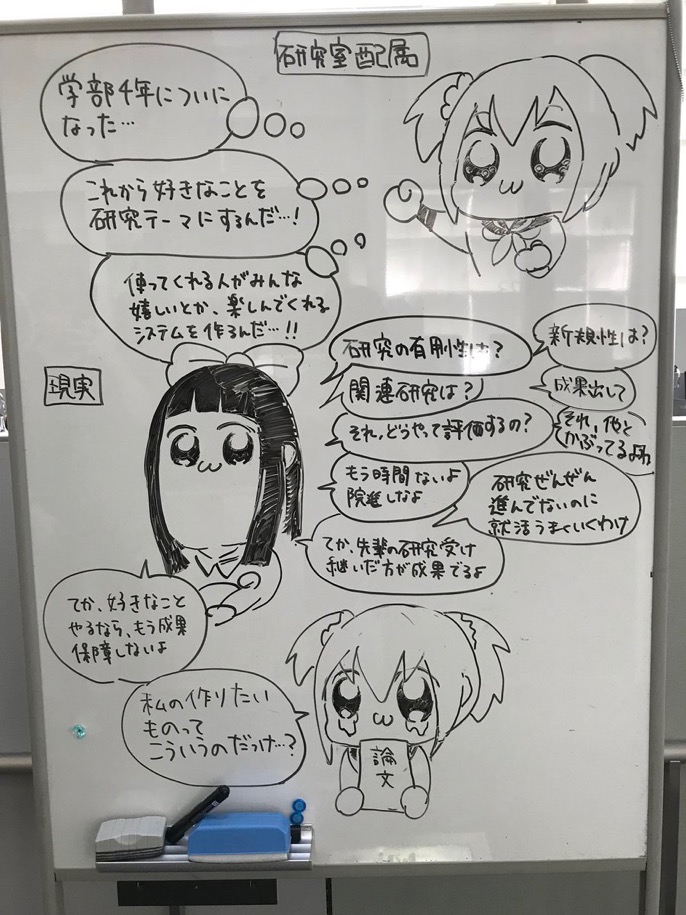 研究室配属
学部4年についに
なった…
これから好きなことを
研究テーマにするんだ…!
使ってくれる人がみんな
嬉しいとか、楽しんでくれる
システムを作るんだ…!!
現実
研究の有用性は?
新規性は?
関連研究は?
成果出して
それ、どうやって評価するの?
それ、他と
かぶってるよね
もう時間ないよ
院進しなよ
研究ぜんぜん
進んでないのに
就活うまくいくわけ
てか、先輩の研究受け
継いだ方が成果でるよ
てか、好きなこと
やるなら、もう成果
保障しないよ
私の作りたい
ものって
こういうのだっけ…?
論
文